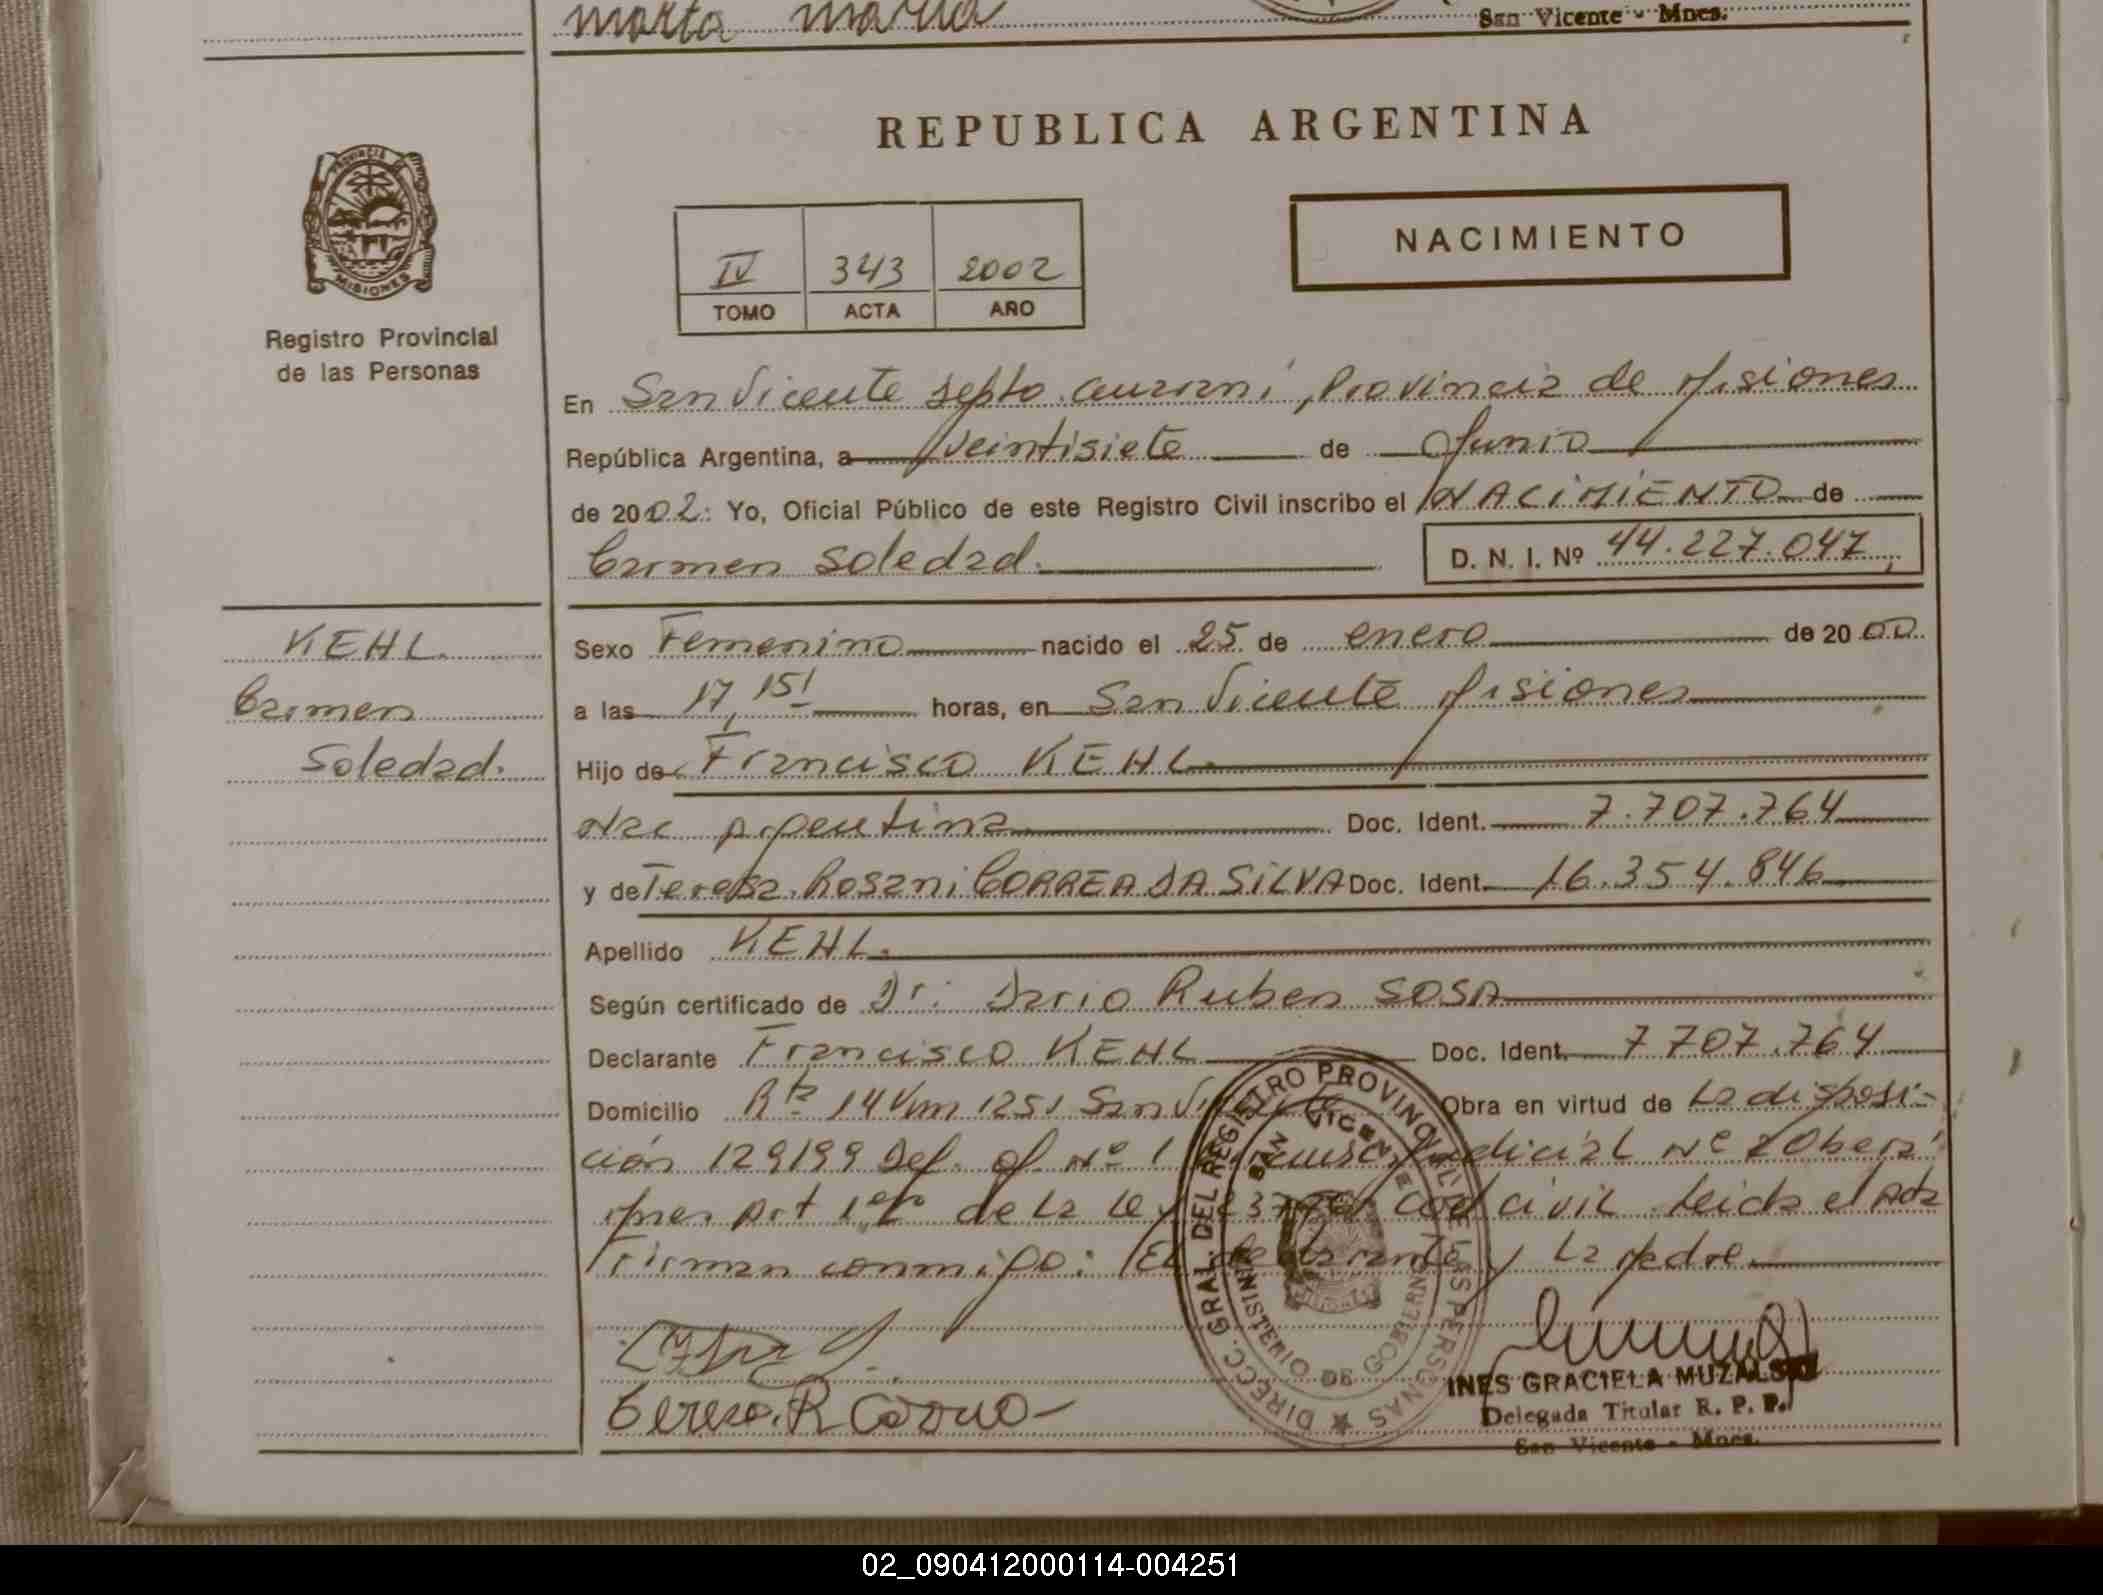 marta maria
San Vicente - Mnes.
REPUBLICA ARGENTINA
PROVINCIA DE
MISIONES
Registro Provincial
de las Personas
IV 343 2002
TOMO ACTA AÑO
NACIMIENTO
En San Vicente Depto. Guaraní, Provincia de Misiones
República Argentina, a veintisiete de Junio
de 2002: Yo, Oficial Público de este Registro Civil inscribo el NACIMIENTO de
Carmen Soledad. D. N. I. Nº 44.227.047
KEHL
Carmen
Soledad.
Sexo Femenino nacido el 25 de enero de 2000
a las 17,15 horas, en San Vicente Misiones
Hijo de Francisco KEHL
Nac Argentina Doc. Ident. 7.707.764
y de Teresa Rosani CORREA DA SILVA Doc. Ident. 16.354.846
Apellido KEHL.
Según certificado de Dr. Dario Ruben SOSA
Declarante Francisco KEHL Doc. Ident. 7707.764
Domicilio Rta 14 Km 1251 San Vicente Obra en virtud de la disposi-
ción 129199 Def. of. Nº 1 Judicial Nº 2 Oberá
Mnes Art 1er de la Ley cod civil leida el Acta
Firman conmigo: El declarante y la Madre
Teresa. R Correo
DIRECC. GRAL. DEL REGISTRO PROVINCIAL DE LAS PERSONAS
SAN VICENTE
MINISTERIO DE GOBIERNO
MISIONES
INES GRACIELA MUZALSKI
Delegada Titular R. P. P.
San Vicente - Mnes.
02_090412000114-004251